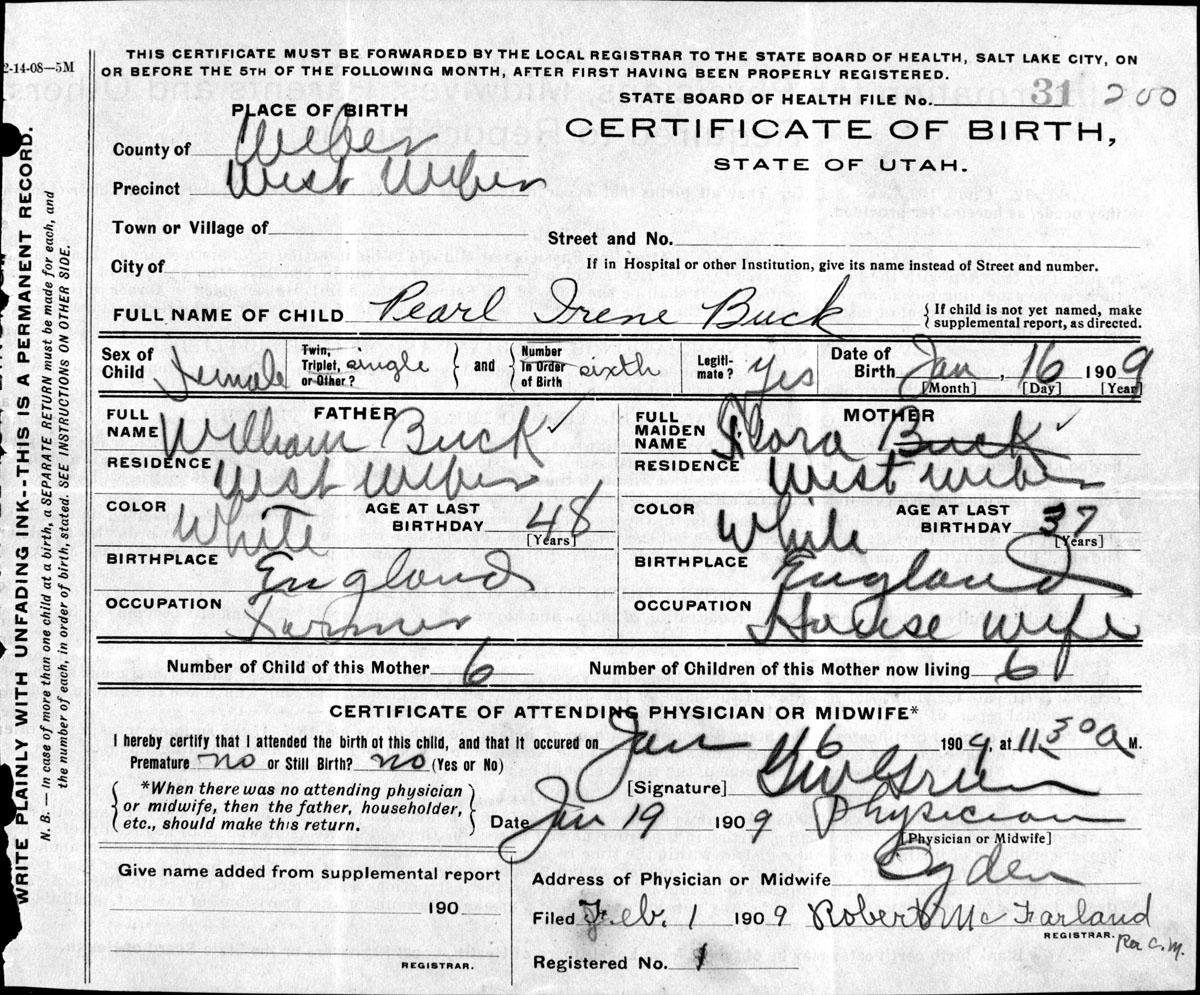 2-14-08—5M
THIS CERTIFICATE MUST BE FORWARDED BY THE LOCAL REGISTRAR TO THE STATE BOARD OF HEALTH, SALT LAKE CITY, ON
OR BEFORE THE 5TH OF THE FOLLOWING MONTH, AFTER FIRST HAVING BEEN PROPERLY REGISTERED.
WRITE PLAINLY WITH UNFADING INK--THIS IS A PERMANENT RECORD.
N. B. — In case of more than one child at a birth, a SEPARATE RETURN must be made for each, and
the number of each, in order of birth, stated. SEE INSTRUCTIONS ON OTHER SIDE.
STATE BOARD OF HEALTH FILE No. 31 200
PLACE OF BIRTH
CERTIFICATE OF BIRTH,
STATE OF UTAH.
County of Weber
Precinct West Weber
Town or Village of
Street and No.
City of
If in Hospital or other Institution, give its name instead of Street and number.
FULL NAME OF CHILD Pearl Irene Buck { If child is not yet named, make
supplemental report, as directed.
Sex of Child Female Twin, Triplet, or Other? single } and { Number In Order of Birth sixth Legiti-mate? Yes Date of Birth Jan, 16 1909
[Month] [Day] [Year]
FATHER MOTHER
FULL NAME William Buck ✓ FULL MAIDEN NAME Flora Buck ✓
RESIDENCE West Weber RESIDENCE West Weber
COLOR White AGE AT LAST BIRTHDAY 48 [Years] COLOR White AGE AT LAST BIRTHDAY 37 [Years]
BIRTHPLACE England BIRTHPLACE England
OCCUPATION Farmer OCCUPATION House wife
Number of Child of this Mother 6 Number of Children of this Mother now living 6
CERTIFICATE OF ATTENDING PHYSICIAN OR MIDWIFE*
I hereby certify that I attended the birth ot this child, and that it occured on Jan 16 1909, at 11 30 a M.
Premature no or Still Birth? no (Yes or No)
[Signature]
{ *When there was no attending physician
or midwife, then the father, householder,
etc., should make this return. }
Date Jan 19 1909 Physician
[Physician or Midwife]
Give name added from supplemental report
Address of Physician or Midwife Ogden
190
Filed Feb. 1 1909 Robert McFarland
REGISTRAR. Per C. M.
REGISTRAR.
Registered No. 1